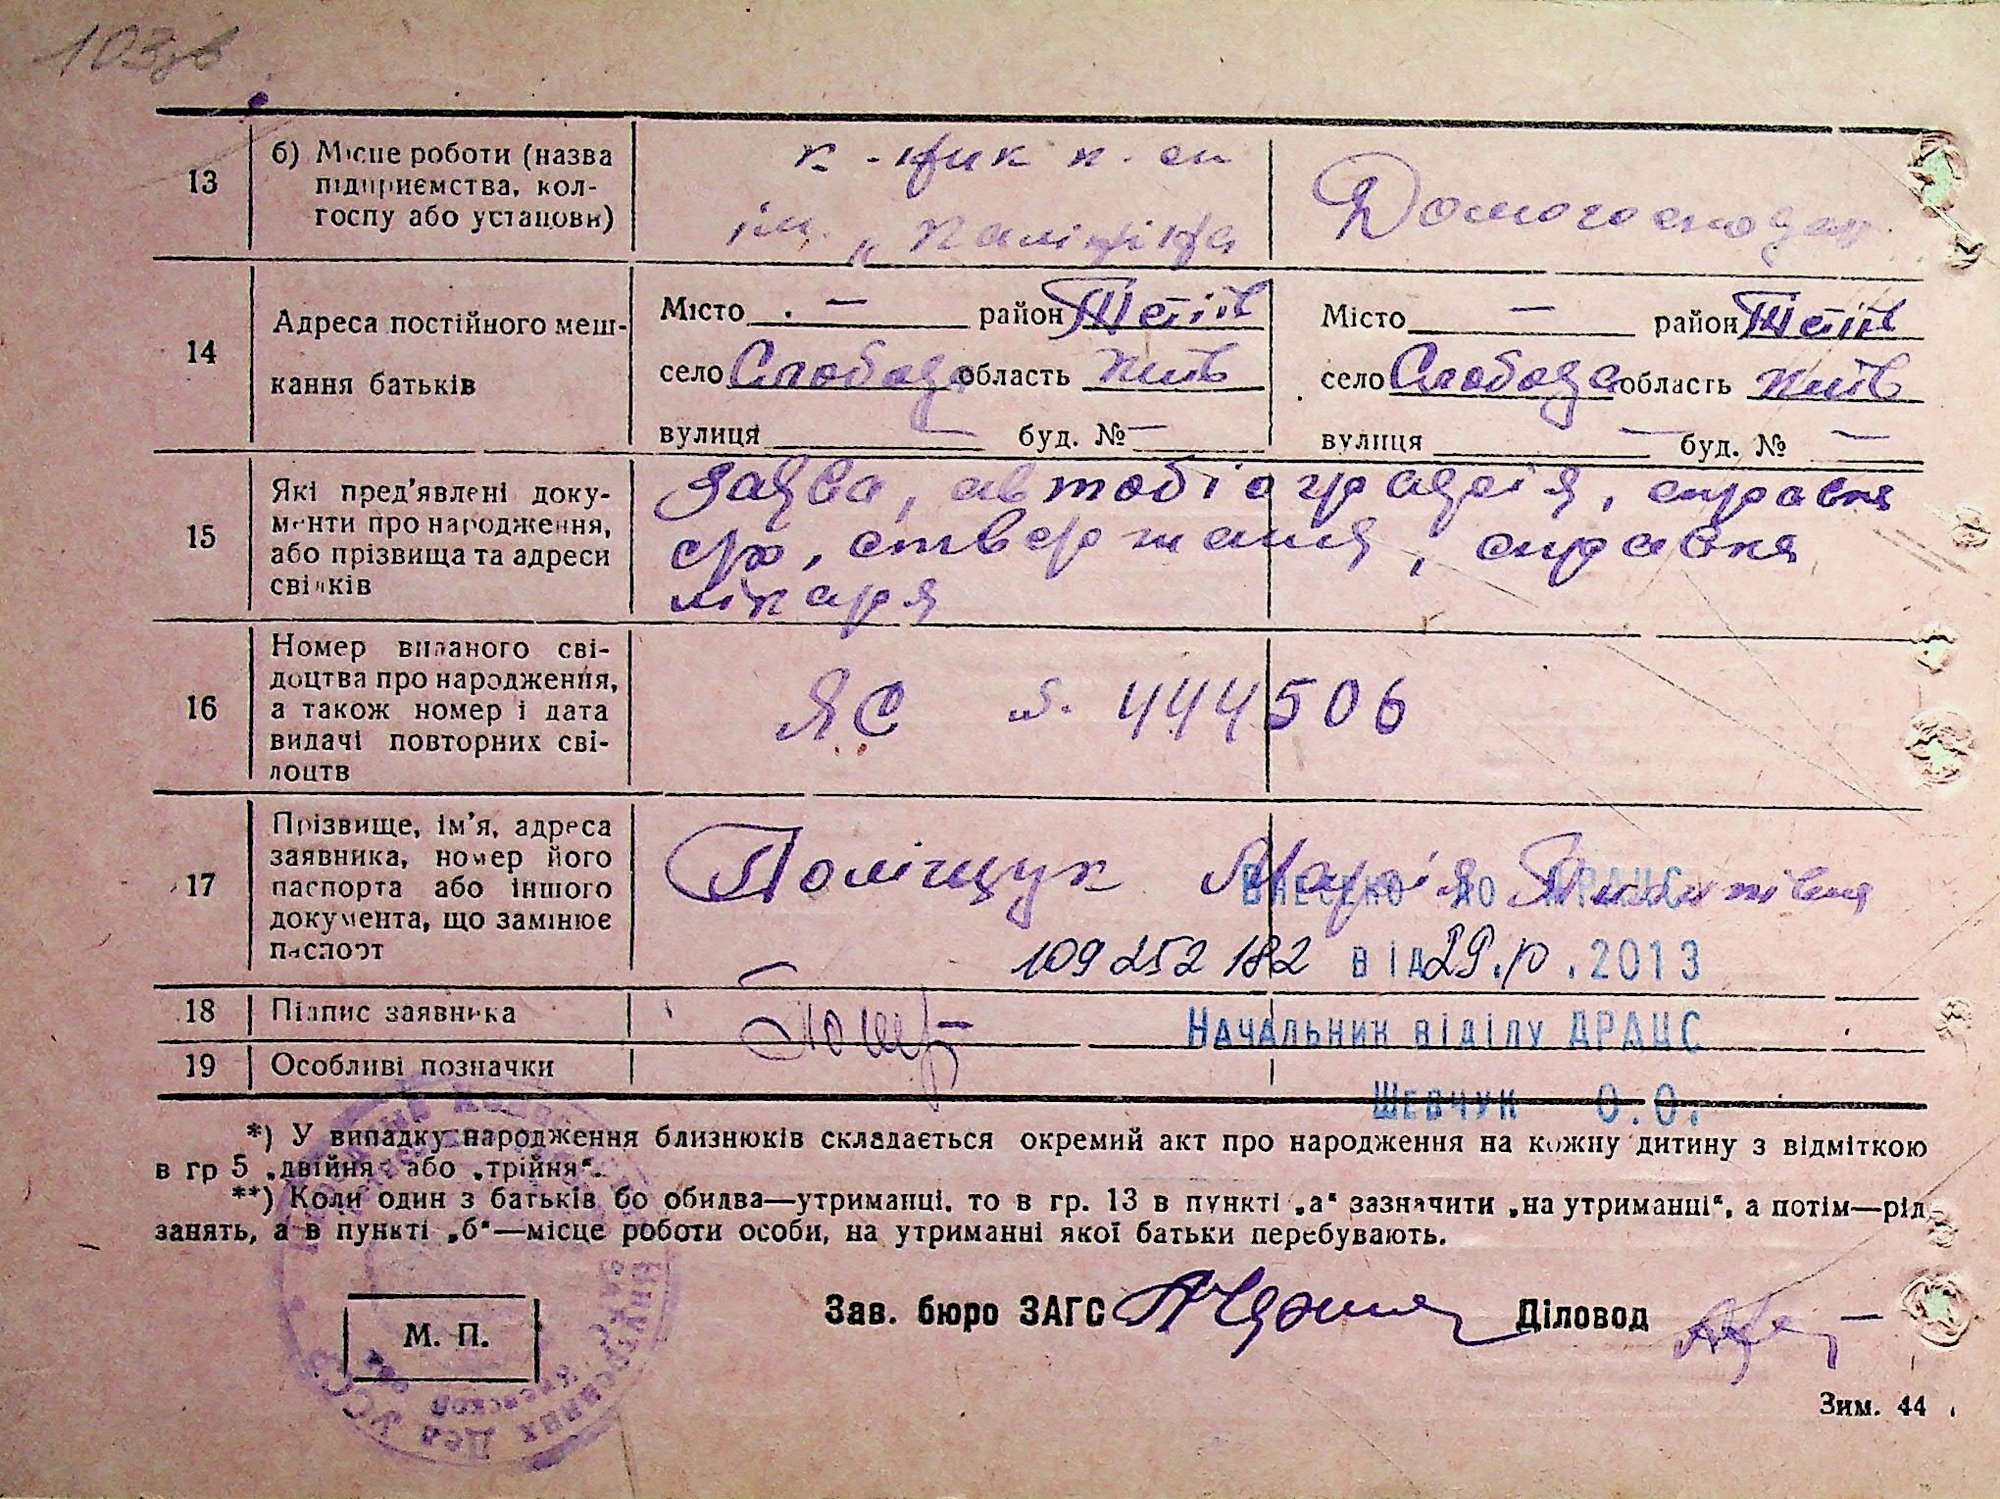 103
13
б) Місце роботи (назва
підприємства, кол-
госпу або установи)
к-ник к-сп
ім. „Калініна
Домогосподар
14
Адреса постійного меш-
кання батьків
Місто — район Тетіїв
село Слобода область Київ
вулиця — буд. № —
Місто — район Тетіїв
село Слобода область Київ
вулиця — буд. № —
15
Які пред'явлені доку-
менти про народження,
або прізвища та адреси
свідків
Заява, автобіографія, справка
с/р, ствержання, справка
лікаря
16
Номер виданого сві-
доцтва про народження,
а також номер і дата
видачі повторних сві-
доцтв
ЯС № 444506
17
Прізвище, ім'я, адреса
заявника, номер його
паспорта або іншого
документа, що замінює
паспорт
Поліщук Марія Микитівна
Внесено до ДРАЦС
109252182 від 29.10.2013
18
Підпис заявника
Начальник відділу ДРАЦС
19
Особливі позначки
Шевчук О.О.
*) У випадку народження близнюків складається окремий акт про народження на кожну дитину з відміткою
в гр 5 „двійня“ або „трійня“.
**) Коли один з батьків бо обидва—утриманці, то в гр. 13 в пункті „а“ зазначити „на утриманні“, а потім—рід
занять, а в пункті „б“—місце роботи особи, на утриманні якої батьки перебувають.
М. П.
Зав. бюро ЗАГС
Діловод
Зим. 44